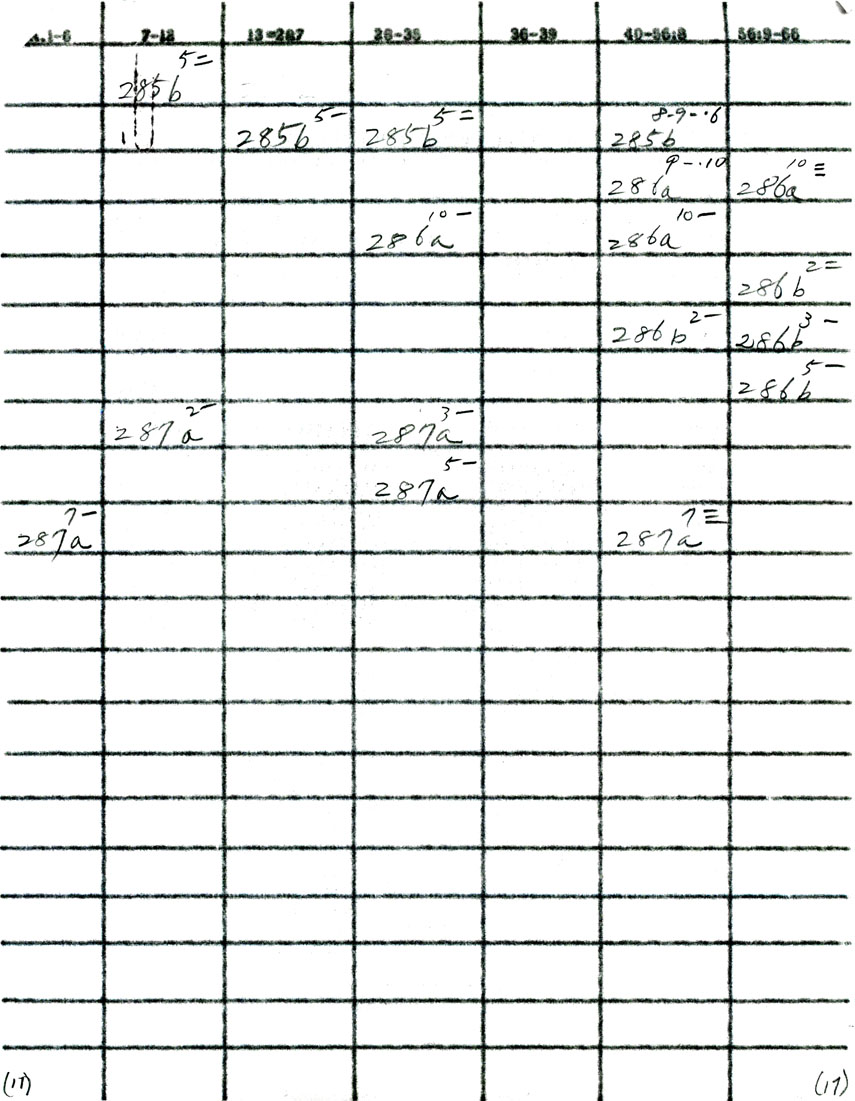 7-12 13-287 28-35 36-39 40-56:8 56:9-66
285b 5=
1 285b 5- 285b 5= 285b 8-9-·6
286a 9-·10 286a 10≡
286a 10- 286a 10-
286b 2=
286b 2- 286b 3-
286b 5-
287a 2- 287a 3-
287a 5-
287a 7- 287a 7≡
(17) (17)